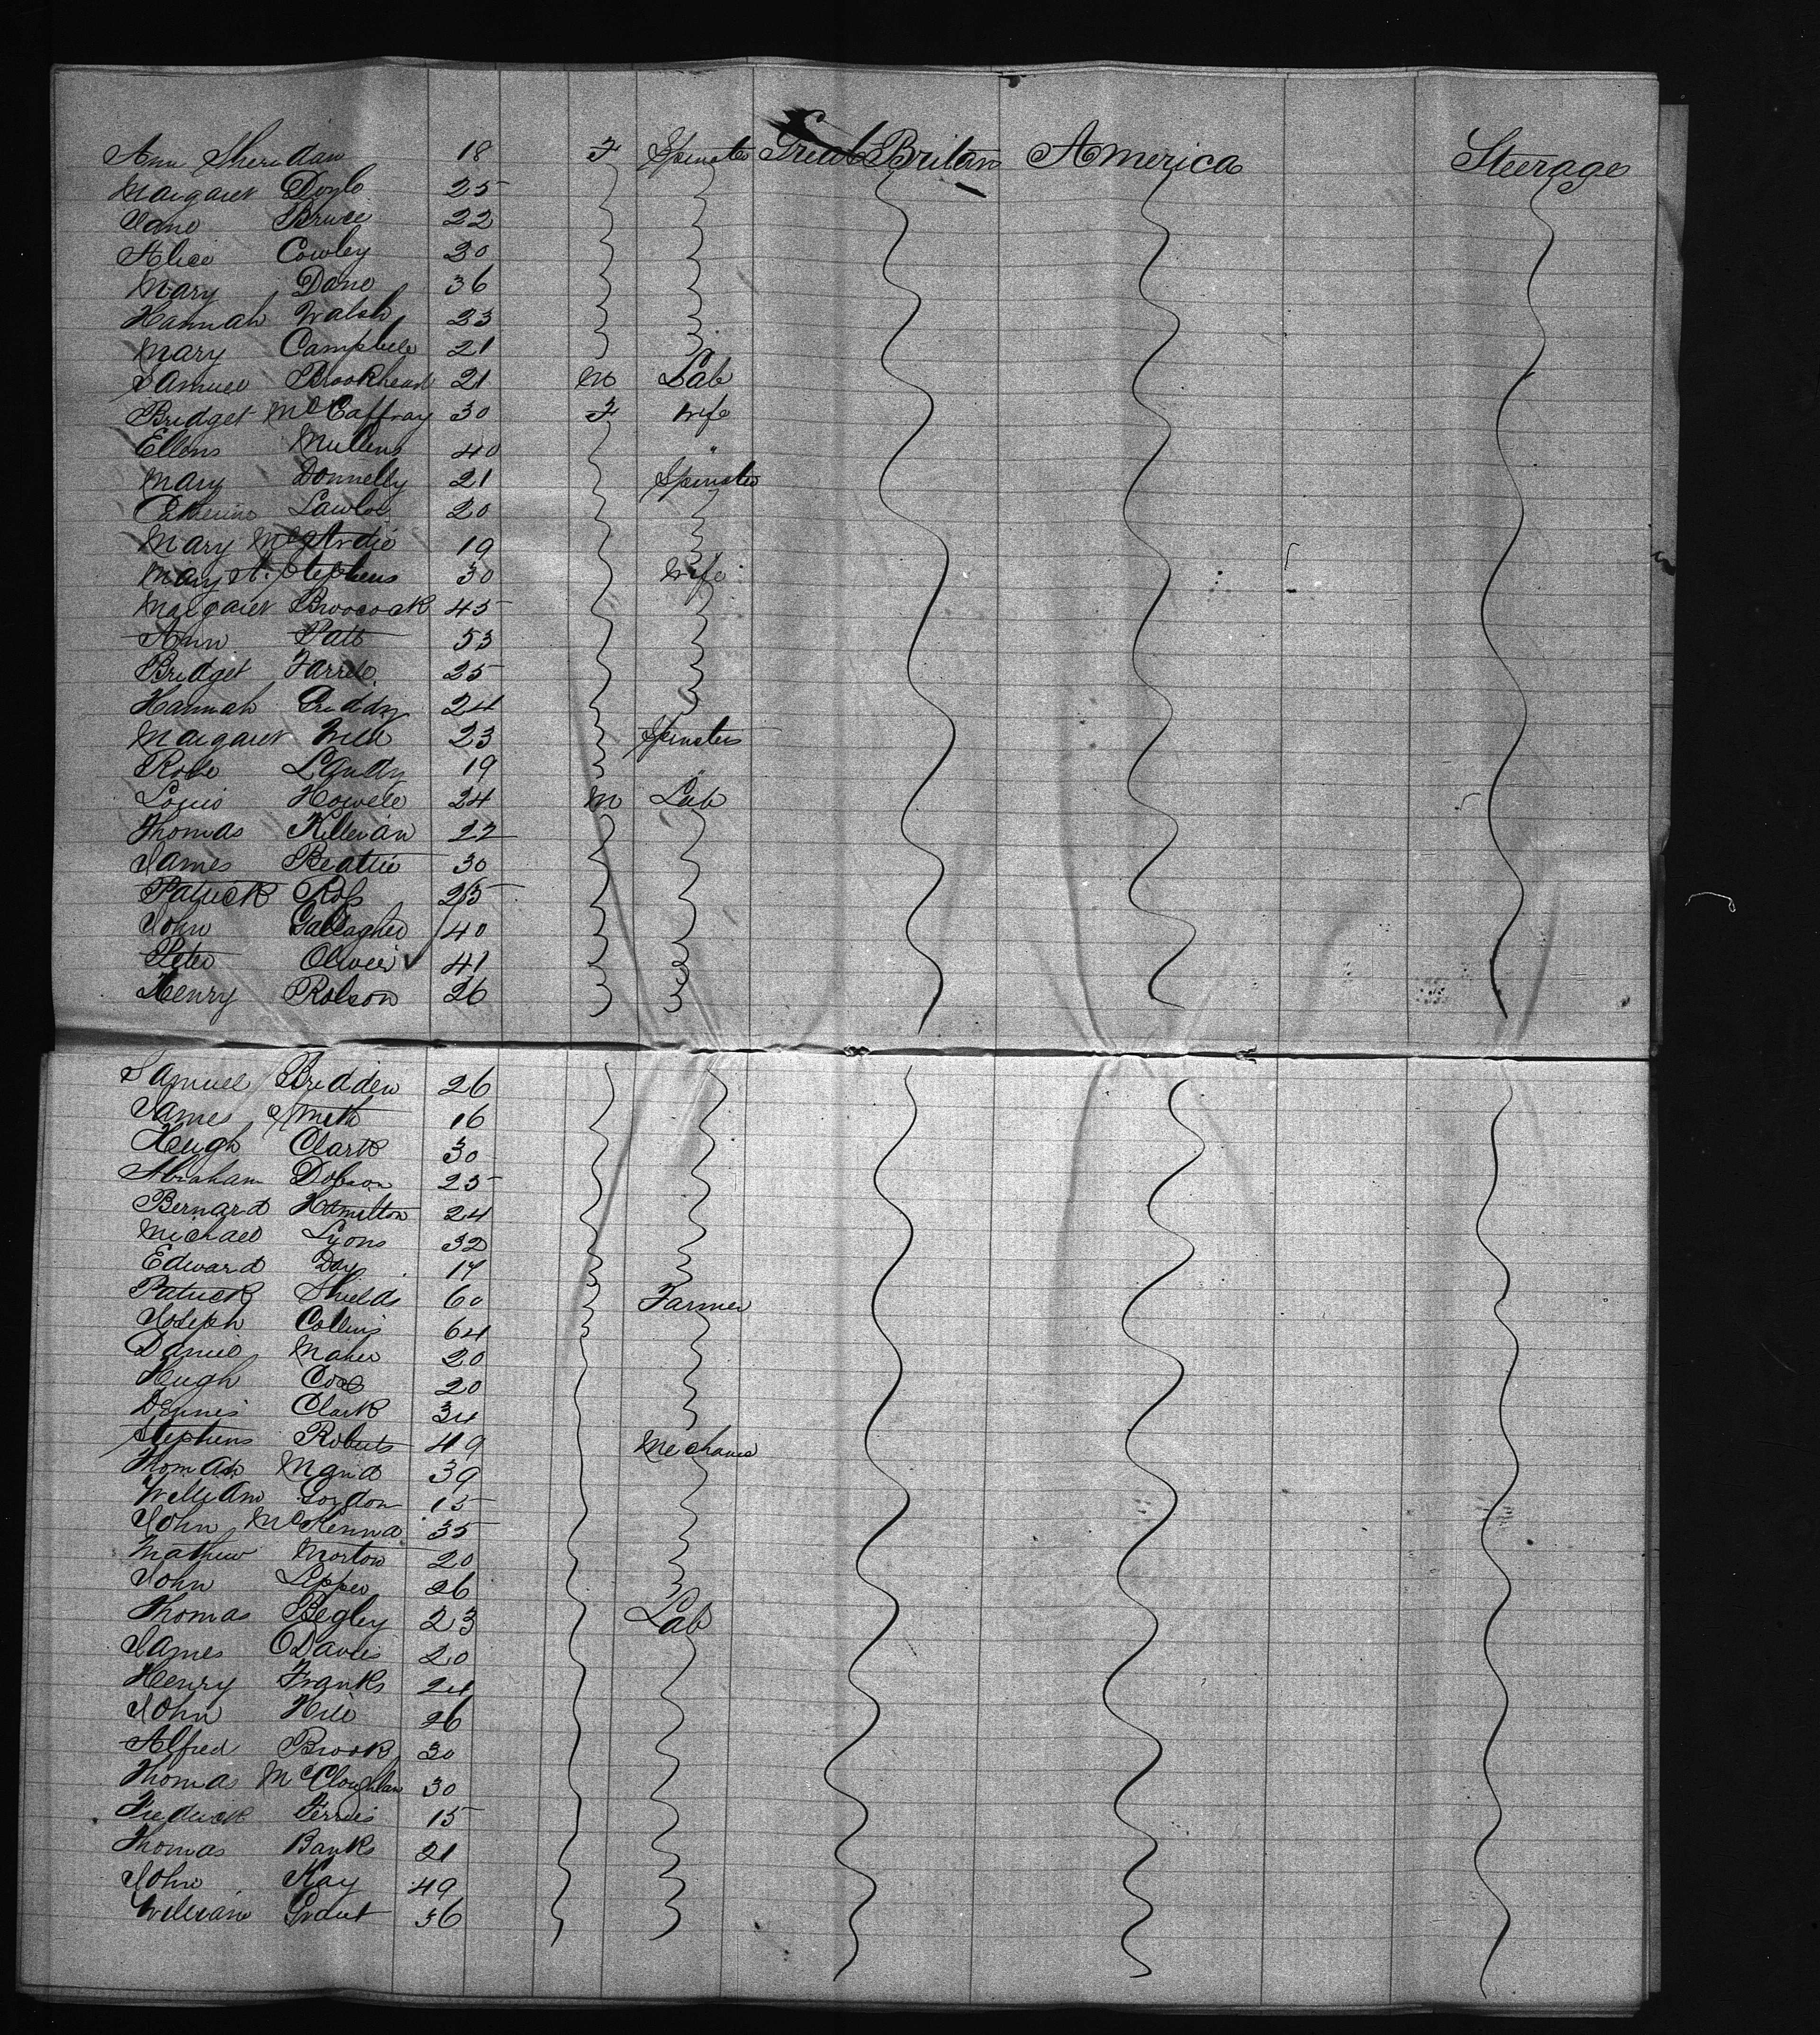 Ann Sheridan 18 F Spinster Great Britan America Steerage
Margaret Doyle 25
Jane Bruce 22
Alice Cowley 30
Mary Dane 36
Hannah Walsh 23
Mary Campbell 21
Samuel Brookhead 21 M Lab
Bridget McCaffray 30 F Wife
Ellens Mullens 40 "
Mary Donnelly 21 Spinster
Catherine Lawlor 20
Mary McArdie 19
Mary A. Stephens 30 Wife
Margaret Broocock 45
Ann 53
Bridget Farrell 25
Hannah Priddy 24
Margaret 23 Spinster
Rose Landy 19 "
Louis Howell 24 M Lab
Thomas Killenan 22
James Beattie 30
Patrick Ross 25
John Gallagher 40
Peter Oliver 41
Henry Robson 26
Samuel Bridden 26
James Smith 16
Hugh Clark 30
Abraham Dobson 25
Bernard Hamilton 24
Michael Lyons 32
Edward Day 17
Patrick Shields 60 Farmer
Joseph Collins 64
Daniel Maher 20
Hugh 20
Dennis Clark 34
Stephens Roberts 49 Mechanic
Thomas Mand 39
William Gordon 15
John McKenna 35
Mathew Morton 20
John Lepper 26
Thomas Begley 23 Lab
James Davies 20
Henry Franks 24
John Hill 26
Alfred Brook 30
Thomas McCloughlan 30
Fredrick Ferris 15
Thomas Banks 21
John Kay 49
William Grant 36